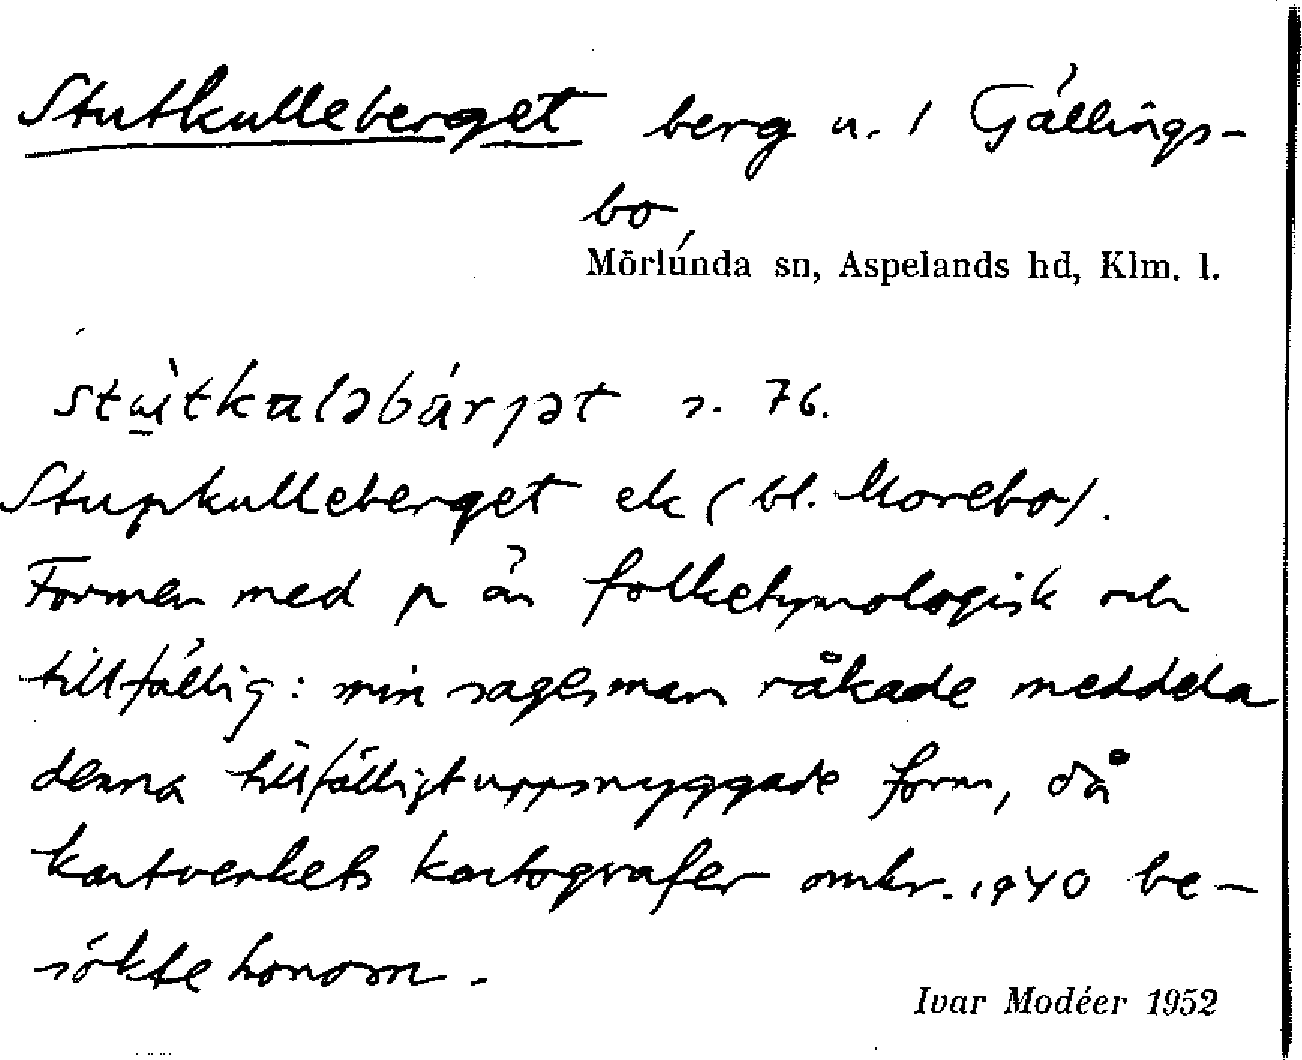 Stutkulleberget berg n. / Gällings-
bo
Mörlunda sn, Aspelands hd, Klm. l.
s. 76.
Stupkulleberget ek (bl. Morebo).
Formen med p är folketymologisk och
tillfällig: min sagesman råkade meddela
denna tillfälligt uppsnyggade form, då
kartverkets kartografer omkr. 1940 be-
sökte honom.
Ivar Modéer 1952